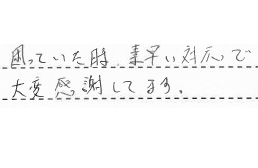 困っていた時、素早い対応で
大変感謝してます。